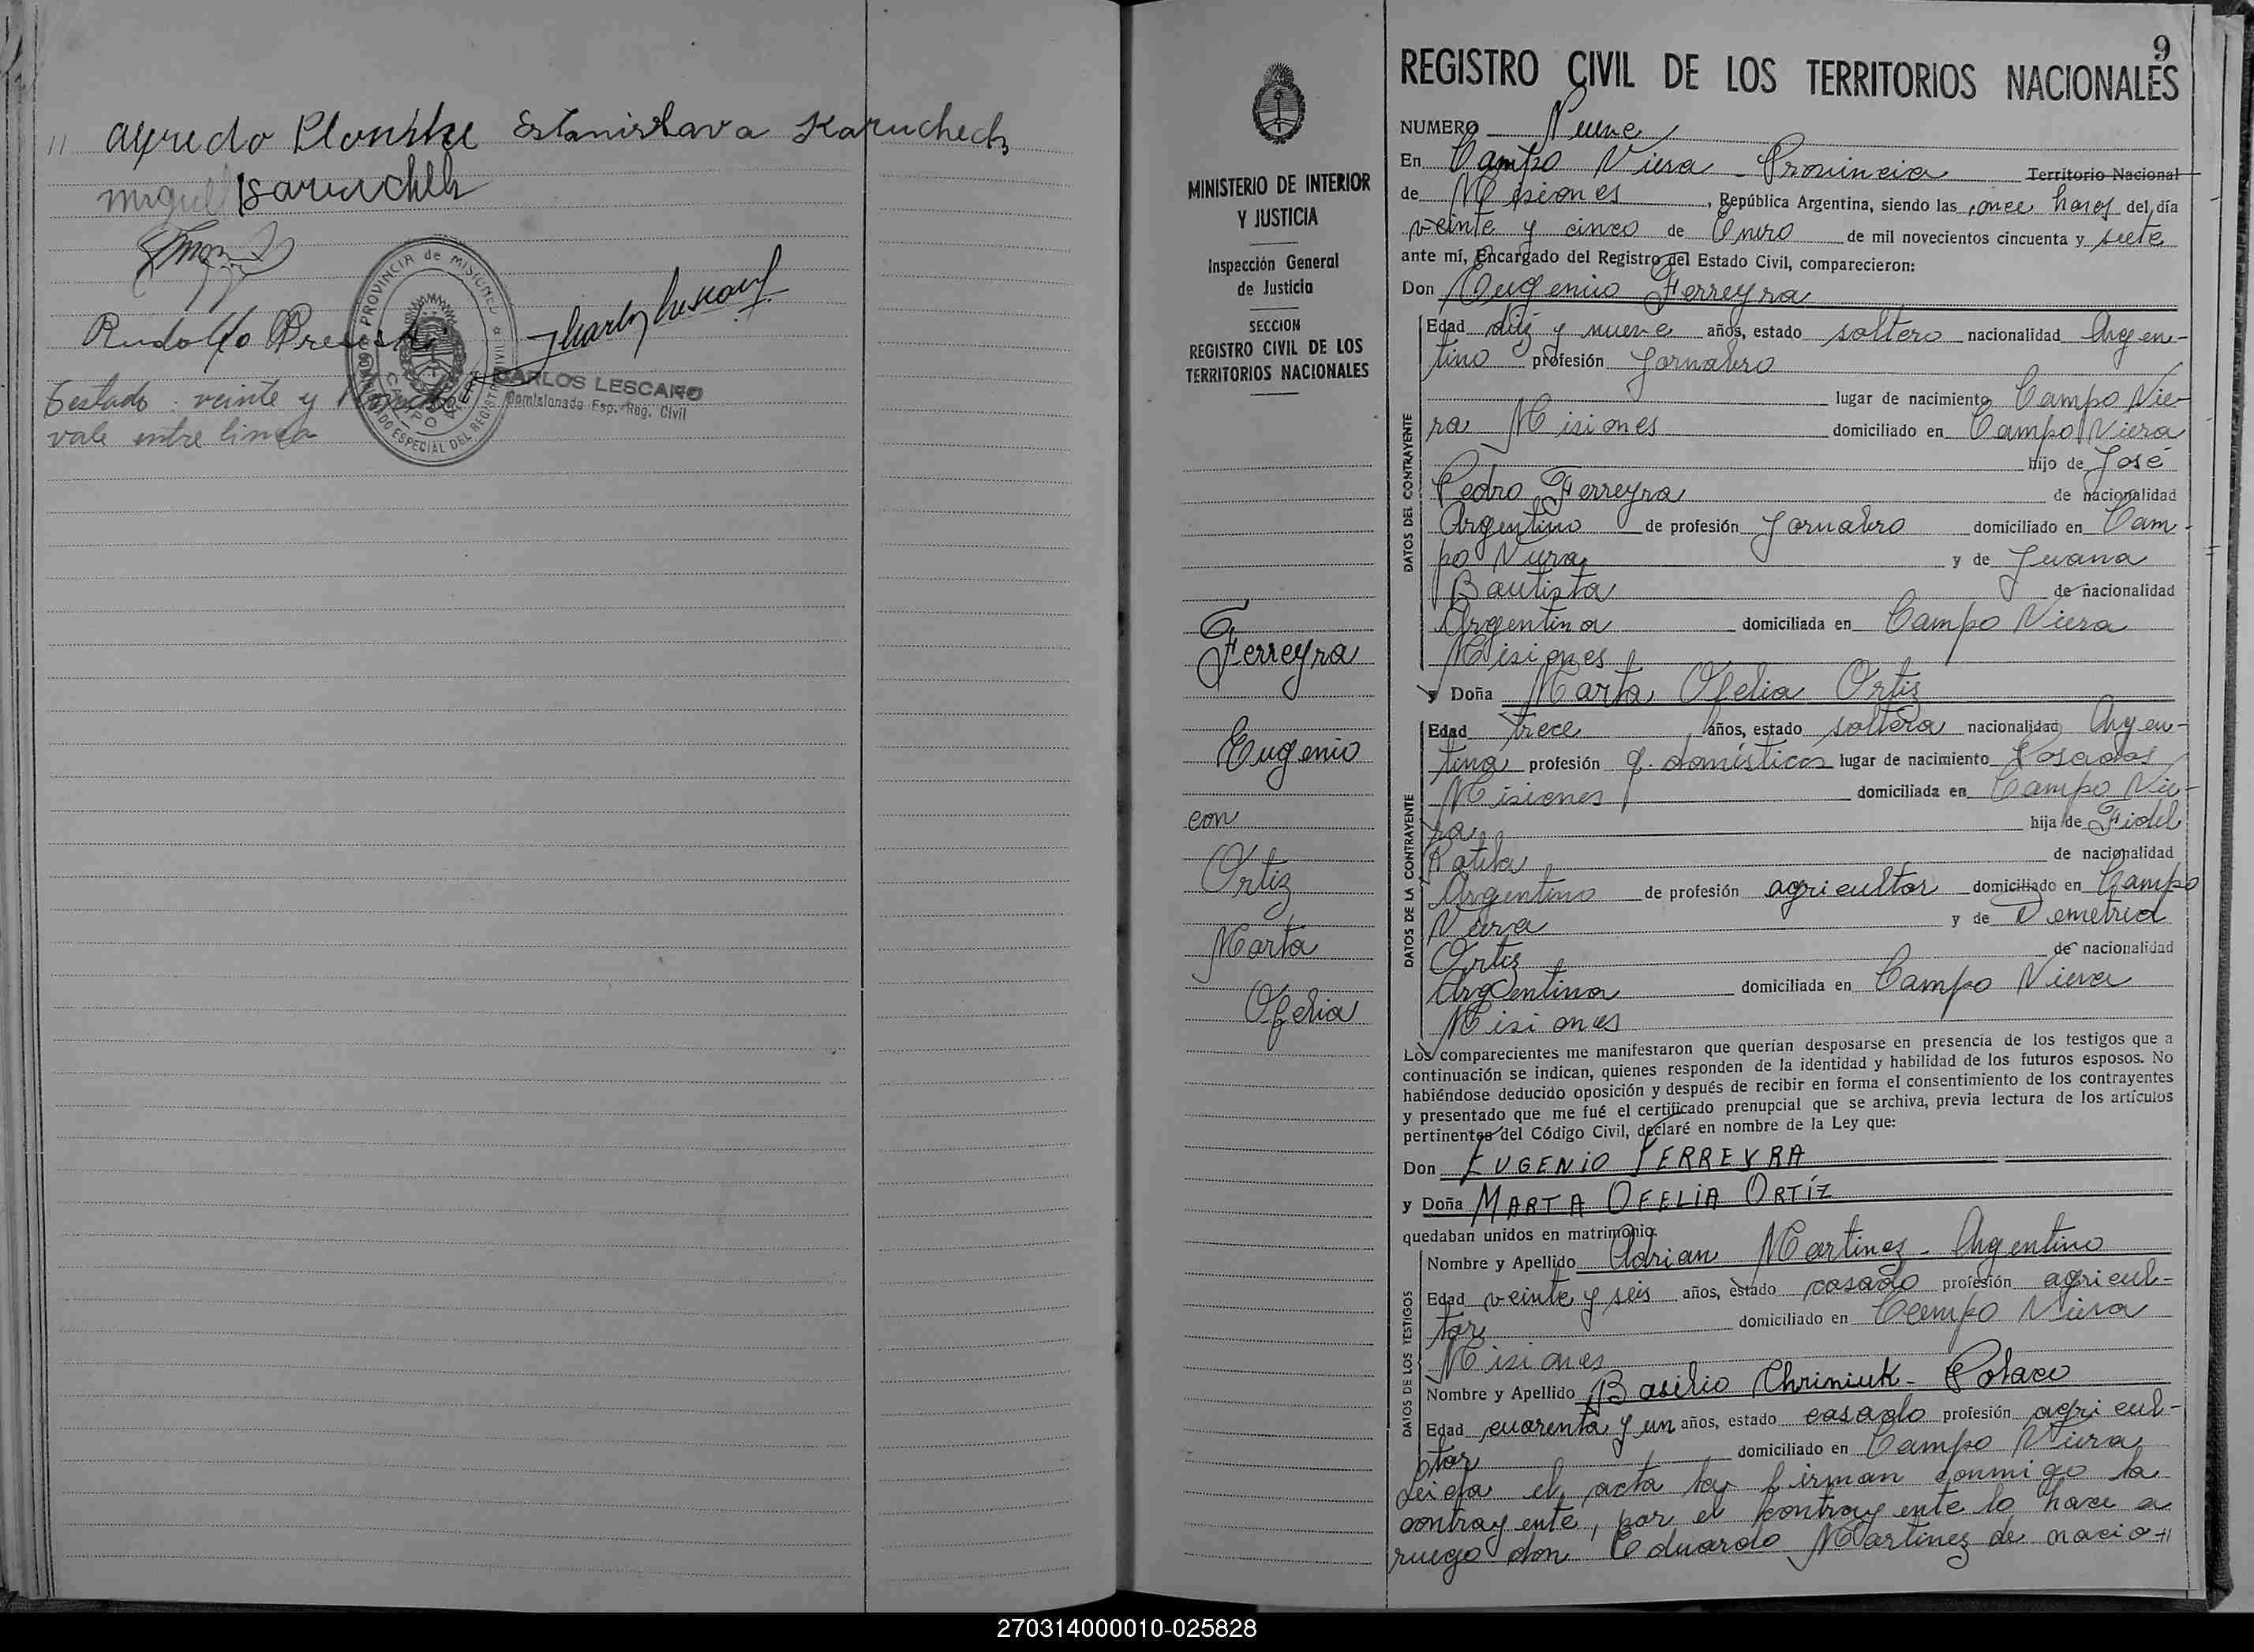 " Alfredo Plonske Estanislava Karuchech
Miguel
Rodolfo
Testado: veinte y
vale entre linea
PROVINCIA de MISIONES
ESPECIAL DEL REGISTRO CIVIL
CARLOS LESCANO
Comisionado Esp. Reg. Civil
MINISTERIO DE INTERIOR
Y JUSTICIA
Inspección General
de Justicia
SECCION
REGISTRO CIVIL DE LOS
TERRITORIOS NACIONALES
Ferreyra
Eugenio
con
Ortiz
Marta
Ofelia
9
REGISTRO CIVIL DE LOS TERRITORIOS NACIONALES
NUMERO Nueve
En Campo Viera - Provincia Territorio Nacional
de Misiones, República Argentina, siendo las once horas del día
veinte y cinco de Enero de mil novecientos cincuenta y siete
ante mí, Encargado del Registro del Estado Civil, comparecieron:
Don Eugenio Ferreyra
DATOS DEL CONTRAYENTE
Edad diez y nueve años, estado soltero nacionalidad Argen-
tino profesión Jornalero
lugar de nacimiento Campo Vie-
ra Misiones domiciliado en Campo Viera
hijo de José
Pedro Ferreyra de nacionalidad
Argentino de profesión Jornalero domiciliado en Cam-
po Viera y de Juana
Bautista de nacionalidad
Argentina domiciliada en Campo Viera
Misiones
y Doña Marta Ofelia Ortiz
DATOS DE LA CONTRAYENTE
Edad trece años, estado soltera nacionalidad Argen-
tina profesión q. domésticos lugar de nacimiento Posadas
Misiones domiciliada en Campo Vie-
ra hija de Fidel
de nacionalidad
Argentino de profesión agricultor domiciliado en Campo
Viera y de Demetria
Ortiz de nacionalidad
Argentina domiciliada en Campo Viera
Misiones
Los comparecientes me manifestaron que querían desposarse en presencia de los testigos que a
continuación se indican, quienes responden de la identidad y habilidad de los futuros esposos. No
habiéndose deducido oposición y después de recibir en forma el consentimiento de los contrayentes
y presentado que me fué el certificado prenupcial que se archiva, previa lectura de los artículos
pertinentes del Código Civil, declaré en nombre de la Ley que:
Don EUGENIO FERREYRA
y Doña MARTA OFELIA ORTÍZ
quedaban unidos en matrimonio.
DATOS DE LOS TESTIGOS
Nombre y Apellido Adrian Martinez - Argentino
Edad veinte y seis años, estado casado profesión agricul-
tor domiciliado en Campo Viera
Misiones
Nombre y Apellido Basilio Chriniuk - Polaco
Edad cuarenta y un años, estado casado profesión agricul-
tor domiciliado en Campo Viera
Leida el acta la firman conmigo la
contrayente, por el contrayente lo hace a
ruego don Eduardo Martinez de nacio-"
270314000010-025828